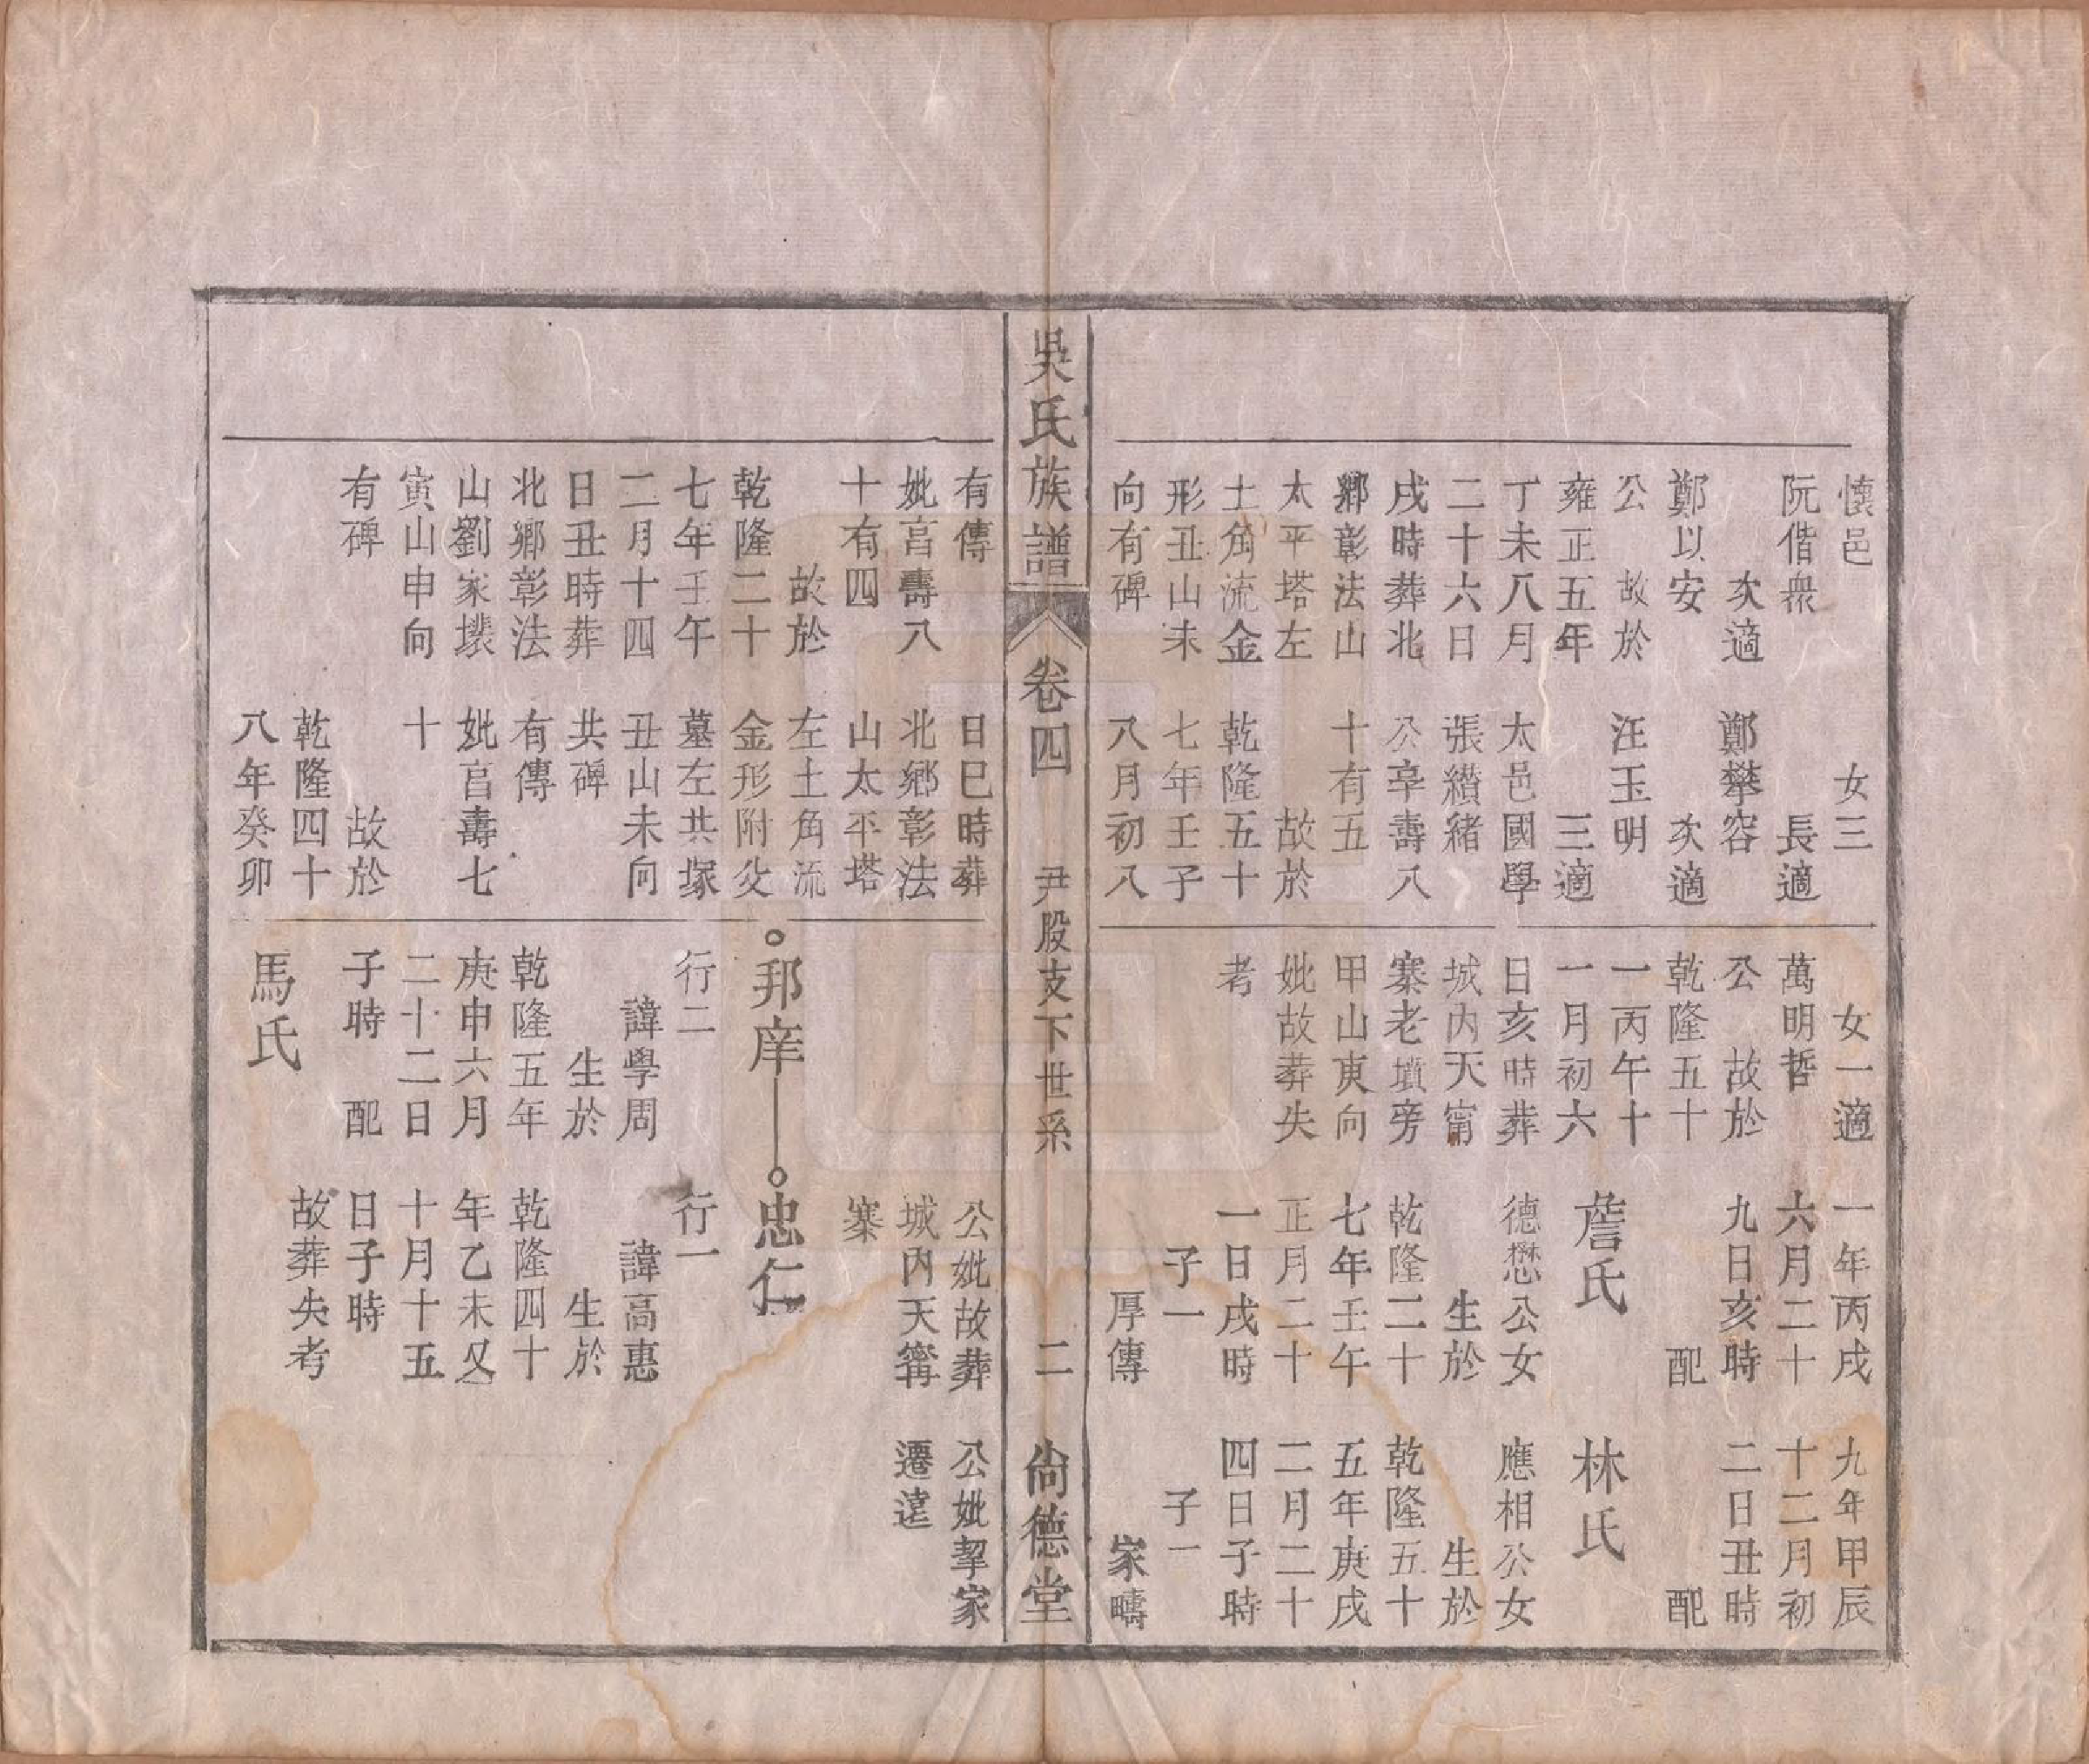 懷邑
阮偕衆
次適
鄭以安
公 故於
雍正五年
丁未八月
二十六日
戌時葬北
鄉彰法山
太平塔左
土角流金
形丑山未
向有碑
女三
長適
鄭攀容
次適
汪玉明
三適
太邑國學
張纘緒
公享壽八
十有五
故於
乾隆五十
七年壬子
八月初八
女一適
萬明哲
公 故於
乾隆五十
一丙午十
一月初六
日亥時葬
城内天甯
寨老墳旁
甲山庚向
妣故葬失
考
一年丙戌
六月二十
九日亥時
配
詹氏
德懋公女
生於
乾隆二十
七年壬午
正月二十
一日戌時
子一
厚傳
九年甲辰
十二月初
二日丑時
配
林氏
應相公女
生於
乾隆五十
五年庚戌
二月二十
四日子時
子一
家疇
吳氏族譜 卷四 尹股支下世系 二 尙德堂
有傳
妣享壽八
十有四
故於
乾隆二十
七年壬午
二月十四
日丑時葬
北鄉彰法
山劉家壪
寅山申向
有碑
日巳時葬
北鄉彰法
山太平塔
左土角流
金形附父
墓左共塚
丑山未向
共碑
有傳
妣享壽七
十
故於
乾隆四十
八年癸卯
邦庠
行二
諱學周
生於
乾隆五年
庚申六月
二十二日
子時 配
馬氏
公妣故葬
城内天甯
寨
忠仁
行一
諱高惠
生於
乾隆四十
年乙未又
十月十五
日子時
故葬失考
公妣挈家
遷遠